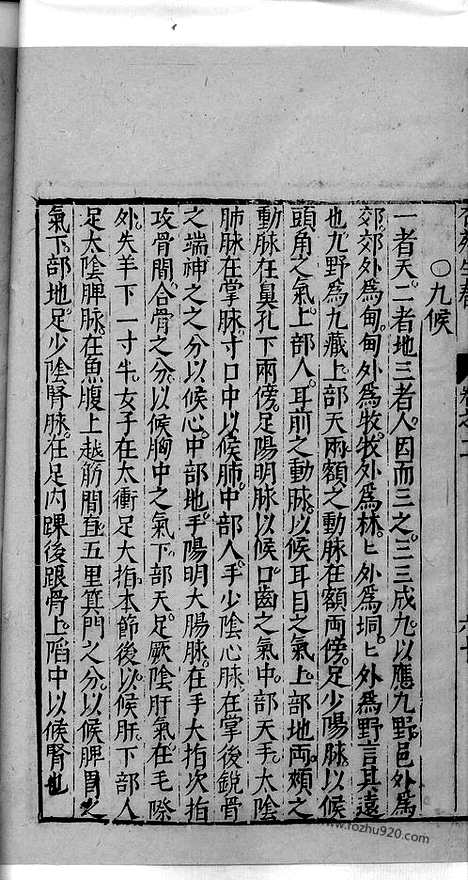 〇九候
一者天二者地三者人因而三之三三成九以應九野邑外為
郊郊外為甸甸外為牧牧外為林匕外為坰匕外為野言其遠
也九野為九藏上部天兩額之動脉在額兩傍足少陽脉以候
頭角之氣上部人耳前之動脉以候耳目之氣上部地兩頰之
動脉在鼻孔下兩傍足陽明脉以候口齒之氣中部天手太陰
肺脉在掌脉寸口中以候肺中部人手少陰心脉在掌後銳骨
之端神之之分以候心中部地手陽明大腸脉在手大指次指
攻骨間合骨之分以候胸中之氣下部天足厥陰肝氣在毛際
外失羊下一寸半女子在太衝足大指本節後以候肝下部人
足太陰脾脉在魚腹上越筋間直五里箕門之分以候脾胃之
氣下部地足少陰腎脉在足内踝後跟骨上陷中以候腎也
www.fozhu920.com